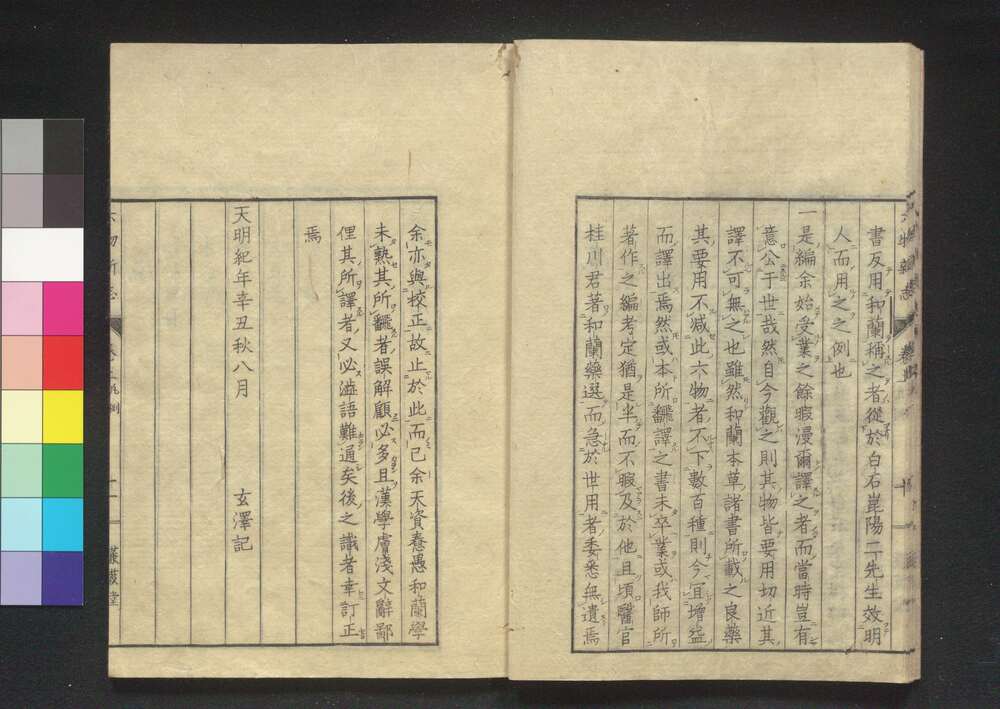 書反用和蘭稱之者從於白石崑陽二先生效明
人而用之之例也
一是編余始受業之餘暇漫爾譯之者而當時豈有
意公于世哉然自今觀之則其物皆要用切近其
譯不可無之也雖然和蘭本草諸書所載之良藥
其要用不減此六物者不下數百種則今宜增益
而譯出焉然或本所飜譯之書未卒業或我師所
著作之編考定猶是半而不暇及於他且頃醫官
桂川君著和蘭藥選而急於世用者委悉無遺焉
余亦與挍正故止於此而已余天資惷愚和蘭學
未熟其所飜者誤解顧必多且漢學膚淺文辭鄙
俚其所譯者又必澁語難通矣後之識者幸訂正
焉
天明紀年辛丑秋八月　玄澤記